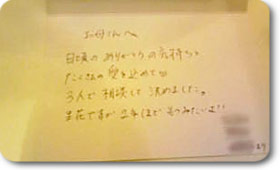 お母さんへ
日頃のありがとうの気持ちと
たくさんの愛を込めて♡
3人で相談して決めました。
生花ですが 2年ほどもつみたいよ!!
より